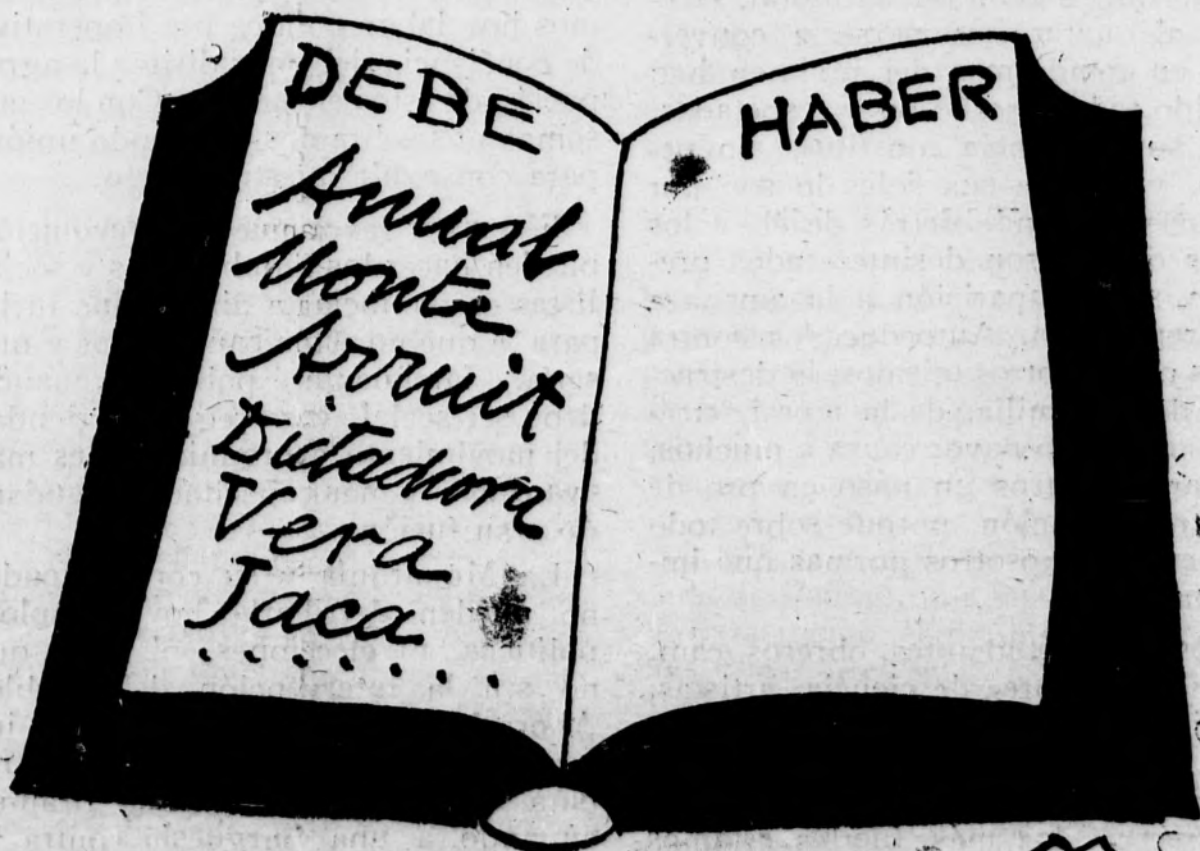 DEBE
Annual
Monte
Arruit
Dictadura
Vera
Jaca
.......
HABER